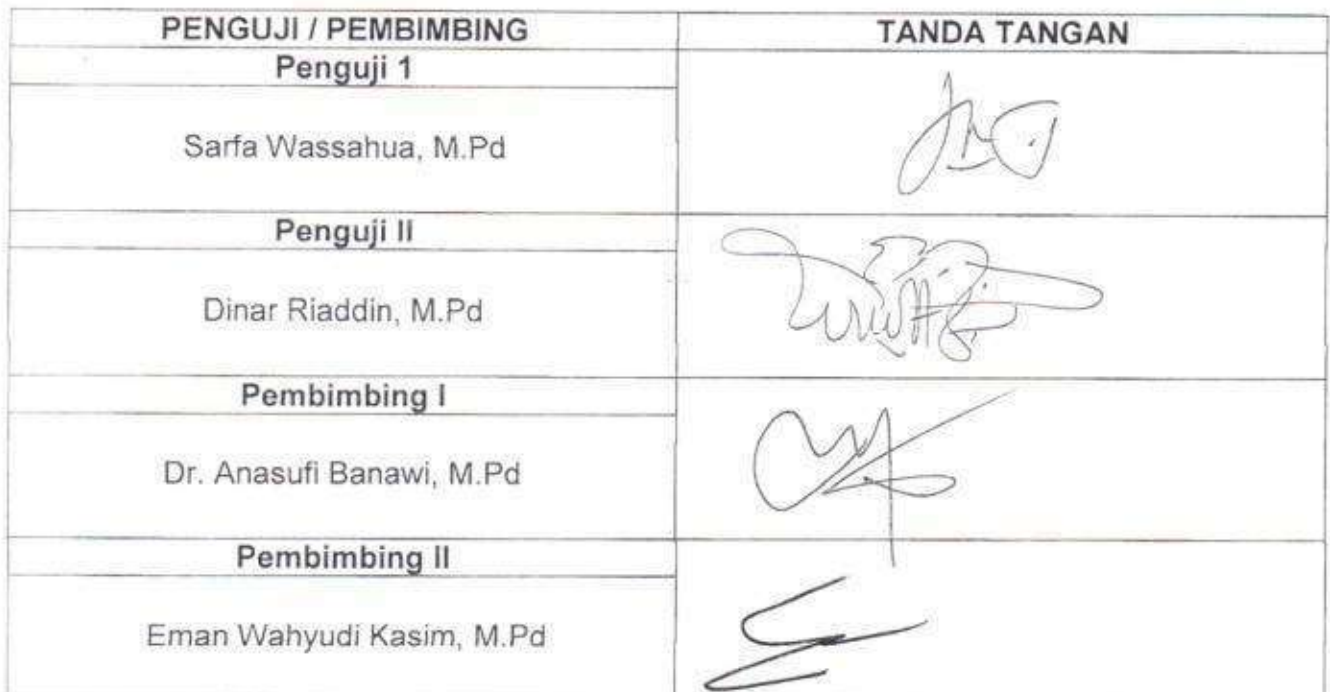 PENGUJI / PEMBIMBING TANDA TANGAN
Penguji 1
Sarfa Wassahua, M.Pd
Penguji II
Dinar Riaddin, M.Pd
Pembimbing I
Dr. Anasufi Banawi, M.Pd
Pembimbing II
Eman Wahyudi Kasim, M.Pd